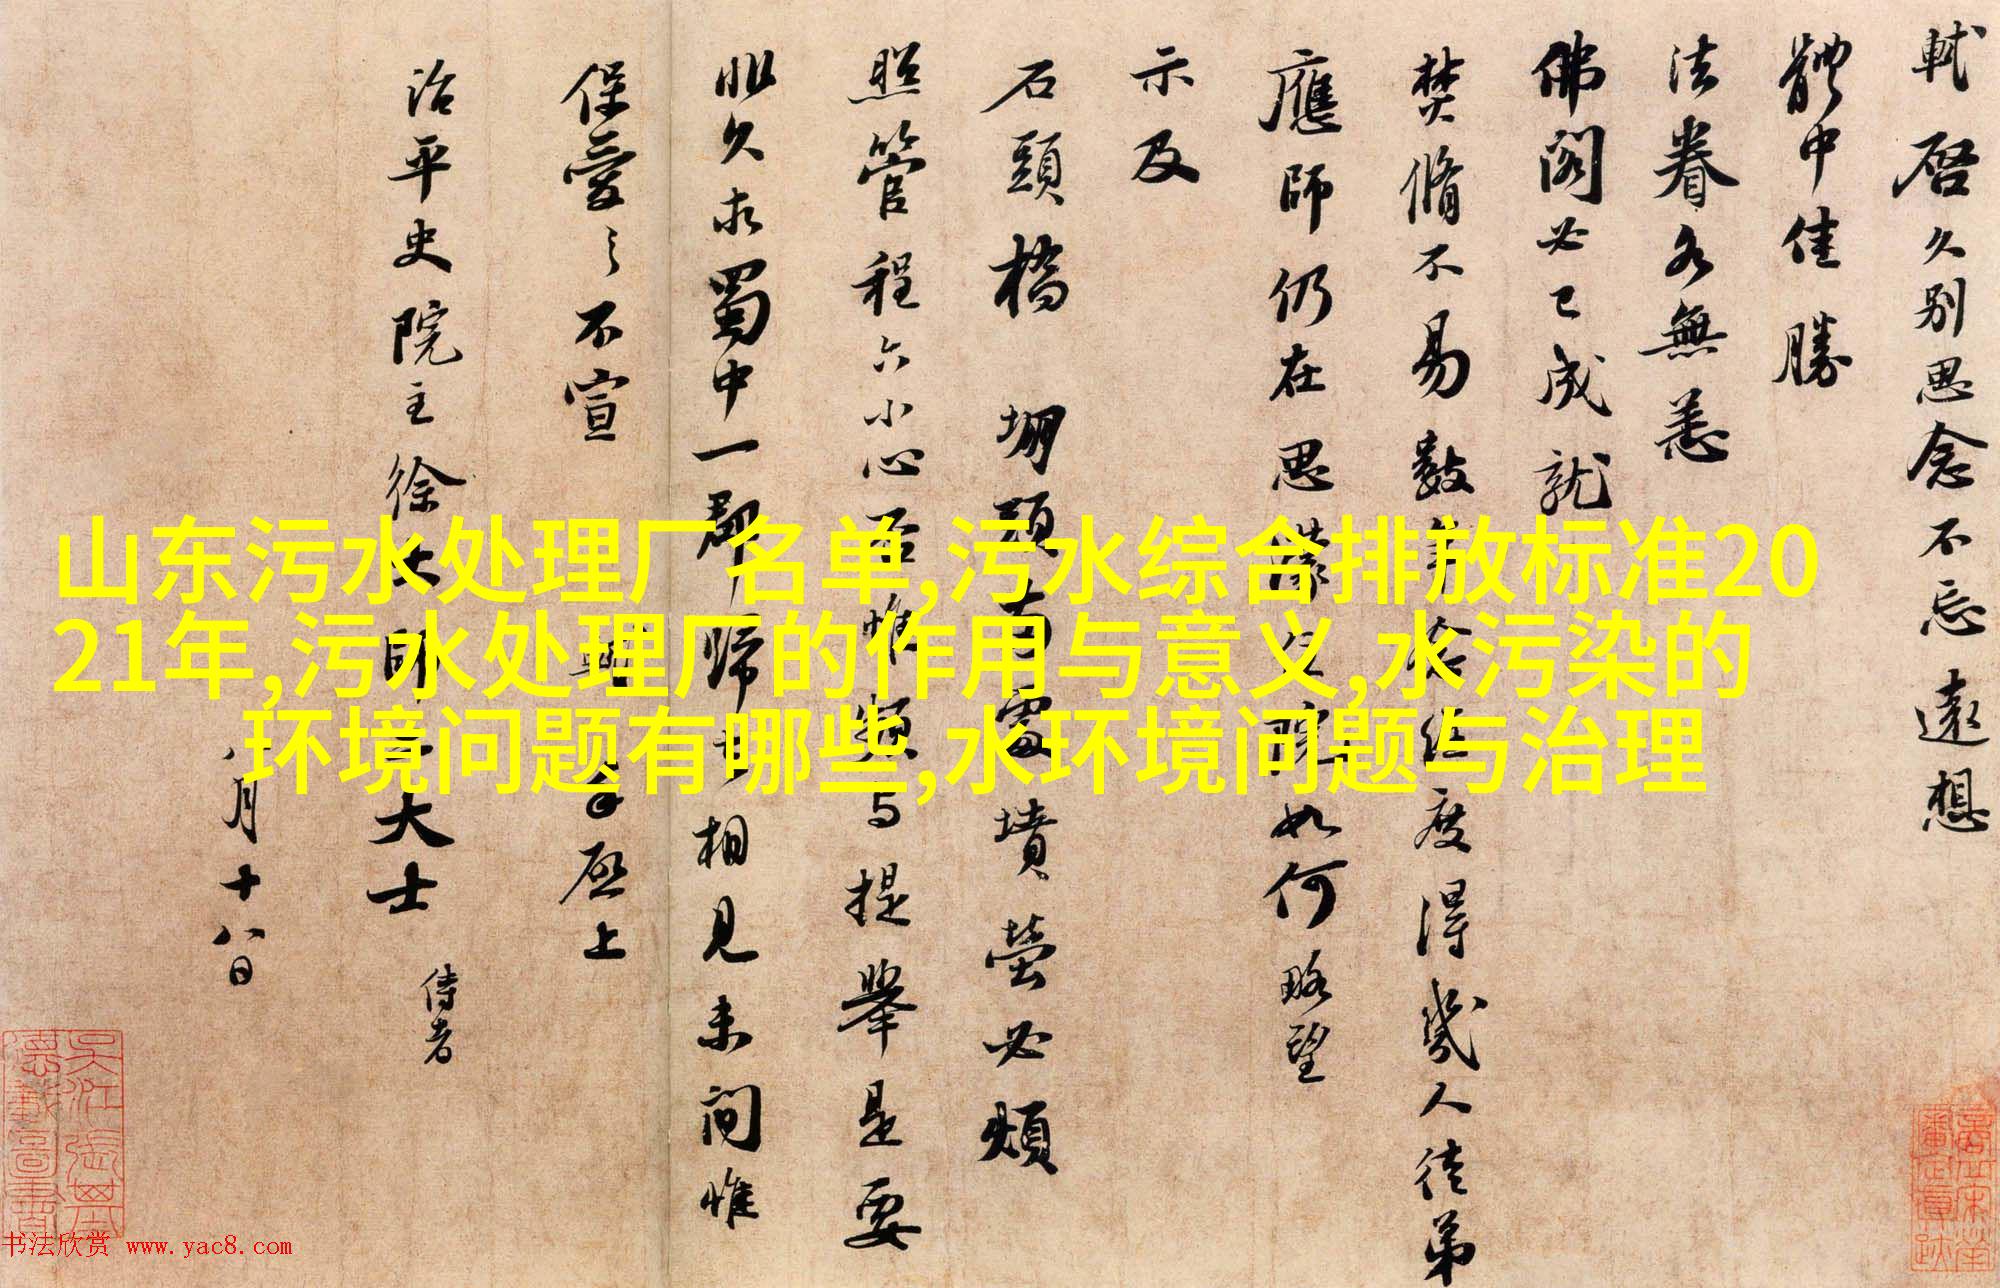 軾啓久別思念不忘遠想
體中佳勝
法眷各無恙
佛閣必已成就
焚脩不易數年念經度得幾人徒弟
應師仍在思濛住院如何略望
示及
石頭橋 堋頭兩處墳塋必煩
照管程六小心否惟頻與提舉是要
非久求蜀中一郡歸去相見未間惟
保愛之不宣 軾手啓上
治平史院主徐大師二大士 侍者
八月十八日
山东污水处理厂名单,污水综合排放标准20
21年,污水处理厂的作用与意义,水污染的
环境问题有哪些,水环境问题与治理
书法欣赏 www.yac8.com